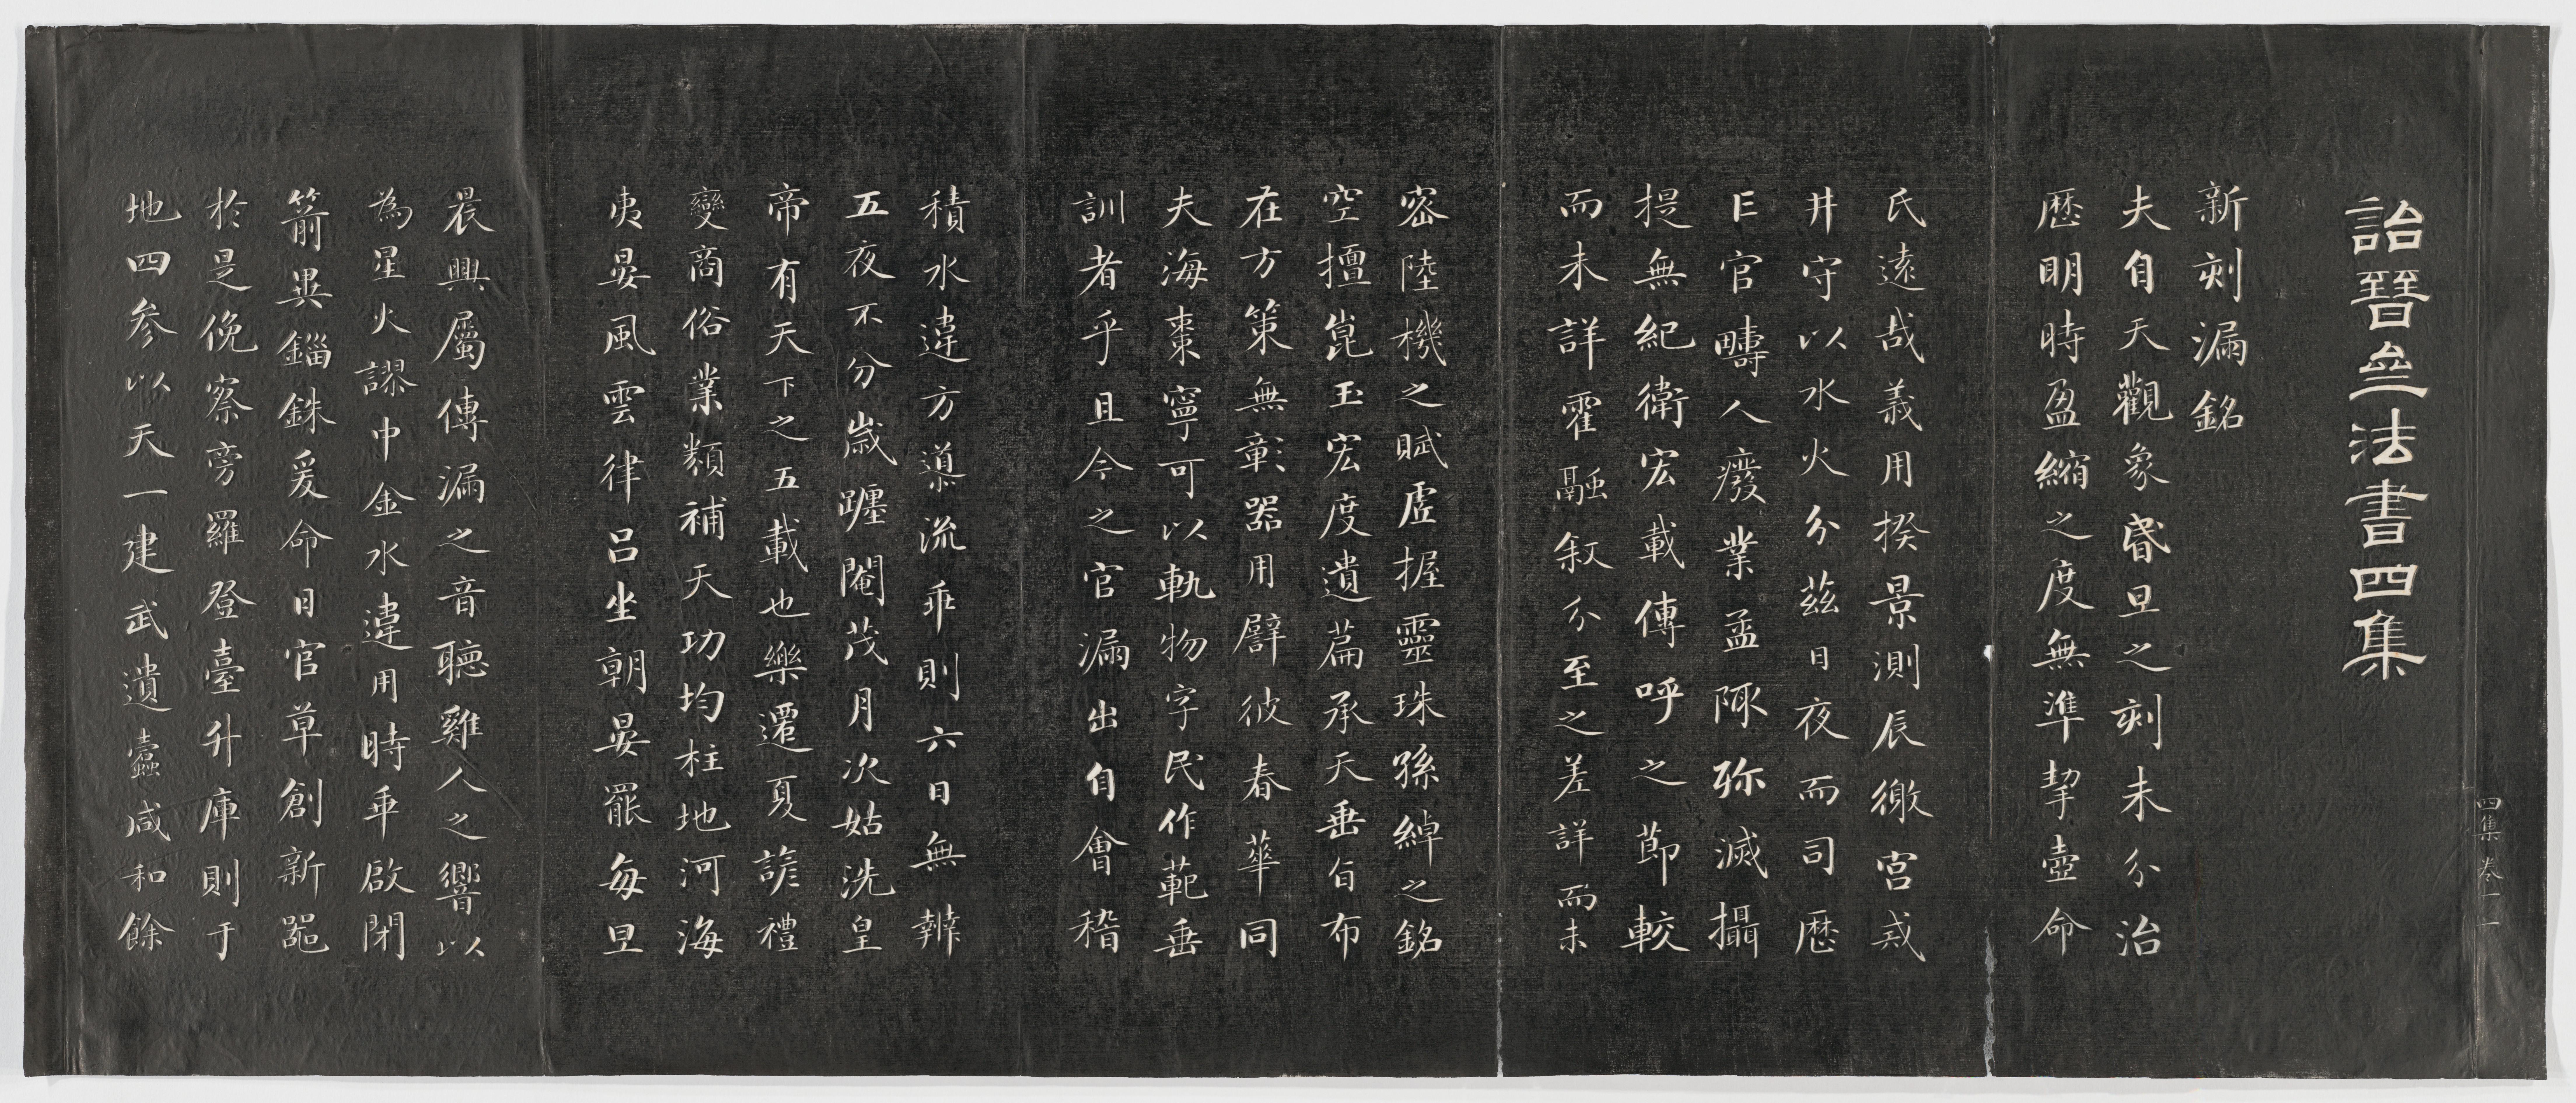 詒晉叁法書四集
新刻漏銘
夫自天觀象昏旦之刻未分治
歷明時盈縮之度無準挈壺命
氏遠哉義用揆景測辰徼宮戒
井守以水火分茲日夜而司歷
亡官疇人癈業孟陬弥滅攝
提無紀衛宏載傳呼之莭較
而未詳霍融叙分至之差詳而未
密陸機之賦虛握靈珠孫綽之銘
空擅崑玉宏度遺篇承天垂旨布
在方策無彰器用譬彼春華同
夫海棗寧可以軌物字民作範垂
訓者乎且今之官漏出自會稽
積水違方導流乖則六日無辨
五夜不分歲躔閹茂月次姑洗皇
帝有天下之五載也樂遷夏諺禮
變商俗業類補天功均柱地河海
夷晏風雲律呂坐朝晏罷每旦
晨興屬傳漏之音聽雞人之響以
為星火謬中金水違用時乖啟閉
箭異錙銖爰命日官草創新器
於是俛察旁羅登臺升庫則于
地四參以天一建武遺蠹咸和餘
四集 卷一 一